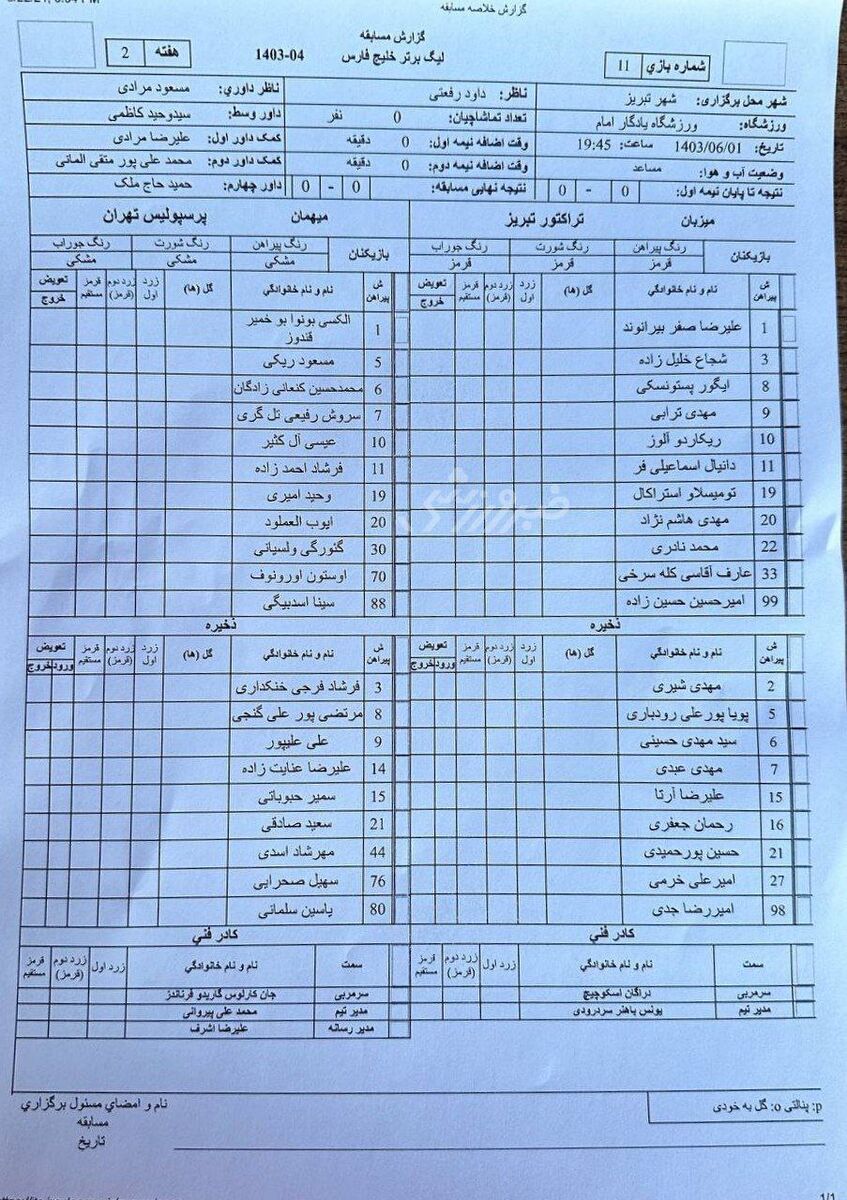 گزارش خلاصه مسابقه
گزارش مسابقه
لیگ برتر خلیج فارس 04-1403
شماره بازي 11
هفته 2
شهر محل برگزاری: شهر تبریز
ناظر: داود رفعتی
ناظر داوري: مسعود مرادی
ورزشگاه: ورزشگاه یادگار امام
تعداد تماشاچیان: 0 نفر
داور وسط: سیدوحید کاظمی
تاریخ: 1403/06/01 ساعت: 19:45
وقت اضافه نیمه اول: 0 دقیقه
کمک داور اول: علیرضا مرادی
وضعیت آب و هوا: مساعد
وقت اضافه نیمه دوم: 0 دقیقه
کمک داور دوم: محمد علی پور متقی المانی
نتیجه تا پایان نیمه اول: 0 - 0
نتیجه نهایی مسابقه: 0 - 0
داور چهارم: حمید حاج ملک
میزبان تراکتور تبریز
بازیکنان
رنگ پیراهن رنگ شورت رنگ جوراب
قرمز قرمز قرمز
ش پیراهن نام و نام خانوادگي گل (ها) زرد اول زرد دوم (قرمز) قرمز مستقیم تعویض خروج
1 علیرضا صفر بیرانوند
3 شجاع خلیل زاده
8 ایگور پستونسکی
9 مهدی ترابی
10 ریکاردو آلوز
11 دانیال اسماعیلی فر
19 تومیسلاو استراکال
20 مهدی هاشم نژاد
22 محمد نادری
33 عارف آقاسی کله سرخی
99 امیرحسین حسین زاده
ذخیره
ش پیراهن نام و نام خانوادگي گل (ها) زرد اول زرد دوم (قرمز) قرمز مستقیم تعویض ورود خروج
2 مهدی شیری
5 پویا پورعلی رودباری
6 سید مهدی حسینی
7 مهدی عبدی
15 علیرضا آرتا
16 رحمان جعفری
21 حسین پورحمیدی
27 امیرعلی خرمی
98 امیررضا جدی
کادر فني
سمت نام و نام خانوادگي زرد اول زرد دوم (قرمز) قرمز مستقیم
سرمربی دراگان اسکوچیچ
مدیر تیم یونس باهنر سردرودی
میهمان پرسپولیس تهران
بازیکنان
رنگ پیراهن رنگ شورت رنگ جوراب
مشکی مشکی مشکی
ش پیراهن نام و نام خانوادگي گل (ها) زرد اول زرد دوم (قرمز) قرمز مستقیم تعویض خروج
1 الکسی بونوا بو خمیر قندوز
5 مسعود ریکی
6 محمدحسین کنعانی زادگان
7 سروش رفیعی تل گری
10 عیسی آل کثیر
11 فرشاد احمد زاده
19 وحید امیری
20 ایوب العملود
30 گئورگی ولسیانی
70 اوستون اورونوف
88 سینا اسدبیگی
ذخیره
ش پیراهن نام و نام خانوادگي گل (ها) زرد اول زرد دوم (قرمز) قرمز مستقیم تعویض ورود خروج
3 فرشاد فرجی خنکداری
8 مرتضی پور علی گنجی
9 علی علیپور
14 علیرضا عنایت زاده
15 سمیر حبوباتی
21 سعید صادقی
44 مهرشاد اسدی
76 سهیل صحرایی
80 یاسین سلمانی
کادر فني
سمت نام و نام خانوادگي زرد اول زرد دوم (قرمز) قرمز مستقیم
سرمربی جان کارلوس گاریدو فرناندز
مدیر تیم محمد علی پیروانی
مدیر رسانه علیرضا اشرف
خبرورزشی
p: پنالتی o: گل به خودی
نام و امضاي مسئول برگزاري
مسابقه
تاریخ
1/1